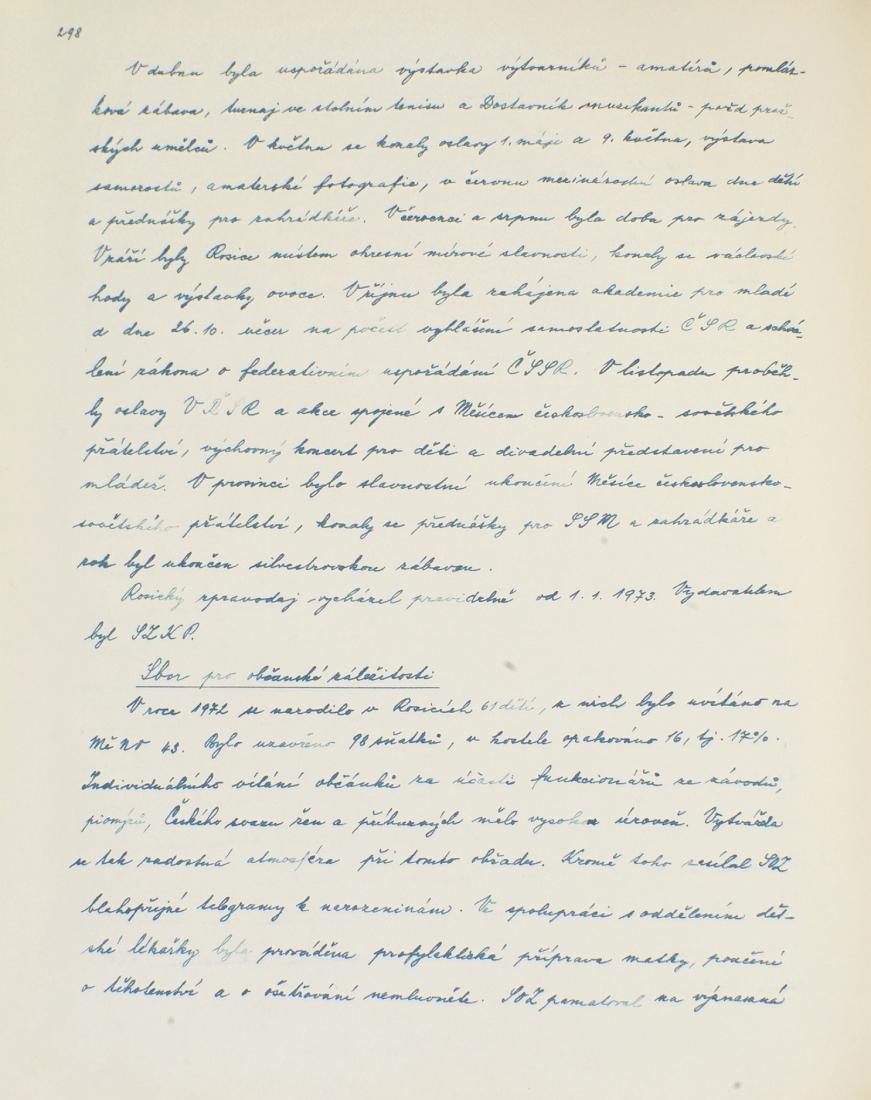 298
V dubnu byla uspořádána výstavka výtvarníků - amatérů, pomláz-
ková zábava, turnaj ve stolním tenisu a Dostavník muzikantů - pořad praž-
ských umělců. V květnu se konaly oslavy 1. máje a 9. května, výstava
samorostů, amaterské fotografie, v červnu mezinárodní oslava dne dětí
a přednášky pro zahrádkáře. V červenci a srpnu byla doba pro zájezdy.
V září byly Rosice místem okresní mírové slavnosti, konaly se václavské
hody a výstavky ovoce. V říjnu byla zahájena akademie pro mladé
a dne 26.10. věcer na počest vyhlášení samostatnosti ČSR a schvá-
lení zákona o federativním uspořádání ČSSR. V listopadu proběh-
ly oslavy VŘSR a akce spojené s Měsícem československo - sovětského
přátelství, výchovný koncert pro děti a divadelní představení pro
mládež. V prosinci bylo slavnostní ukončení Měsíce československo-
sovětského přátelství, konaly se přednášky pro SSM a zahrádkáře a
rok byl ukončen silvestrovskou zábavou.
Rosický zpravodaj vycházel pravidelně od 1.1.1973. Vydavatelem
byl SZKP.
Sbor pro občanské záležitosti
V roce 1972 se narodilo v Rosicích 61 dětí, z nich bylo uvítáno na
MěNV 43. Bylo uzavřeno 98 sňatků, v kostele opakováno 16, tj. 17%.
Individuálního vítání občánků za účasti funkcionářů ze závodů,
pionýrů, Českého svazu žen a příbuzných mělo vysokou úroveň. Vytvářela
se tak radostná atmosféra při tomto obřadu. Kromě toho zasílal SOZ
blahopřejné telegramy k narozeninám. Ve spolupráci s oddělením dět-
ské lékařky byla prováděna profylaktická příprava matky, poučení
o těhotenství a o ošetřování nemluvněte. SOZ pamatoval na významná